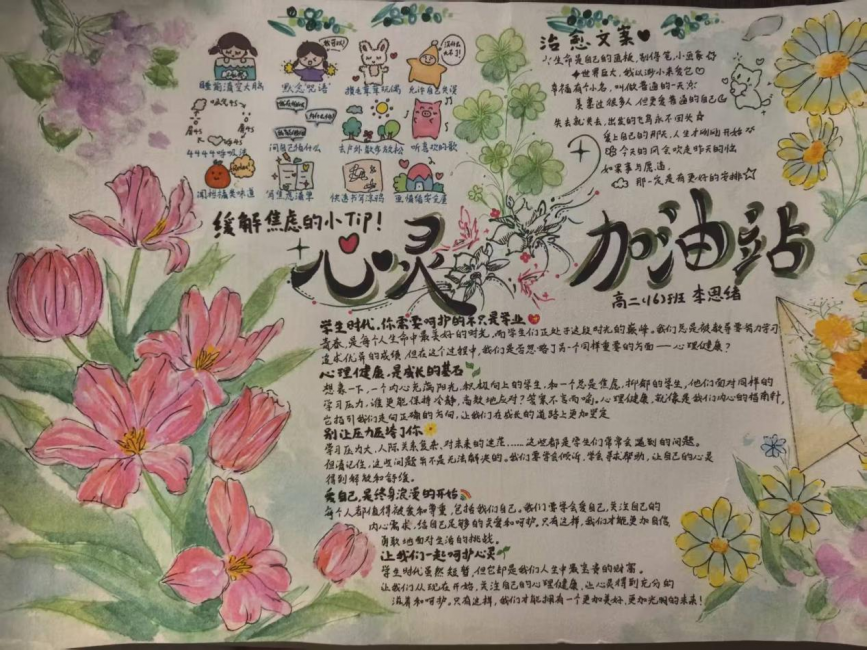 睡前清空大脑
默念"咒语"
我可以!
摸毛茸茸玩偶
允许自己失误
没什么大不了!
吸气4s
屏4s
呼气4s
屏4s
4444呼吸法
问自己怕什么
去户外散步放松
听喜欢的歌
闻柑橘类味道
写焦虑清单
快速书写涂鸦
画情绪安全屋
缓解焦虑的小Tip!
治愈文案
生命是自己的画板,别停笔,小画家
世界巨大,我以渺小来爱它
幸福有个小名,叫做普通的一天
见过很多人,但更爱普通的自己
失去就失去,出发的飞鸟永不回头
爱上自己的那天,人生才刚刚开始
今天的风会吹走昨天的
如果事与愿违,
那一定是有更好的安排
心灵加油站
高二(16)班 李思绪
学生时代,你需要呵护的不只是学业
青春,是每个人生命中最美好的时光,而学生们正处于这段时光的巅峰。我们总是被教导要努力学习
追求优异的成绩,但在这个过程中,我们是否忽略了另一个同样重要的方面——心理健康?
心理健康,是成长的基石
想象一下,一个内心充满阳光、积极向上的学生,和一个总是焦虑、抑郁的学生,他们面对同样的
学习压力,谁更能保持冷静、勇敢地应对?答案不言而喻。心理健康,就像是我们内心的指南针,
它指引我们走向正确的方向,让我们在成长的道路上更加坚定
别让压力压垮了你
学习压力大、人际关系复杂、对未来的迷茫……这些都是学生们常常会遇到的问题。
但请记住,这些问题并不是无法解决的。我们要学会倾诉,学会寻求帮助,让自己的心灵
得到释放和舒缓。
爱自己,是终身浪漫的开始
每个人都值得被爱和尊重,包括我们自己。我们要学会爱自己,关注自己的
内心需求,给自己足够的关爱和呵护,只有这样,我们才能更加自信、
勇敢地面对生活的挑战。
让我们一起呵护心灵
学生时代虽然短暂,但它却是我们人生中最宝贵的财富。
让我们从现在开始,关注自己的心理健康,让心灵得到充分的
滋养和呵护。只有这样,我们才能拥有一个更加美好、更加光明的未来!